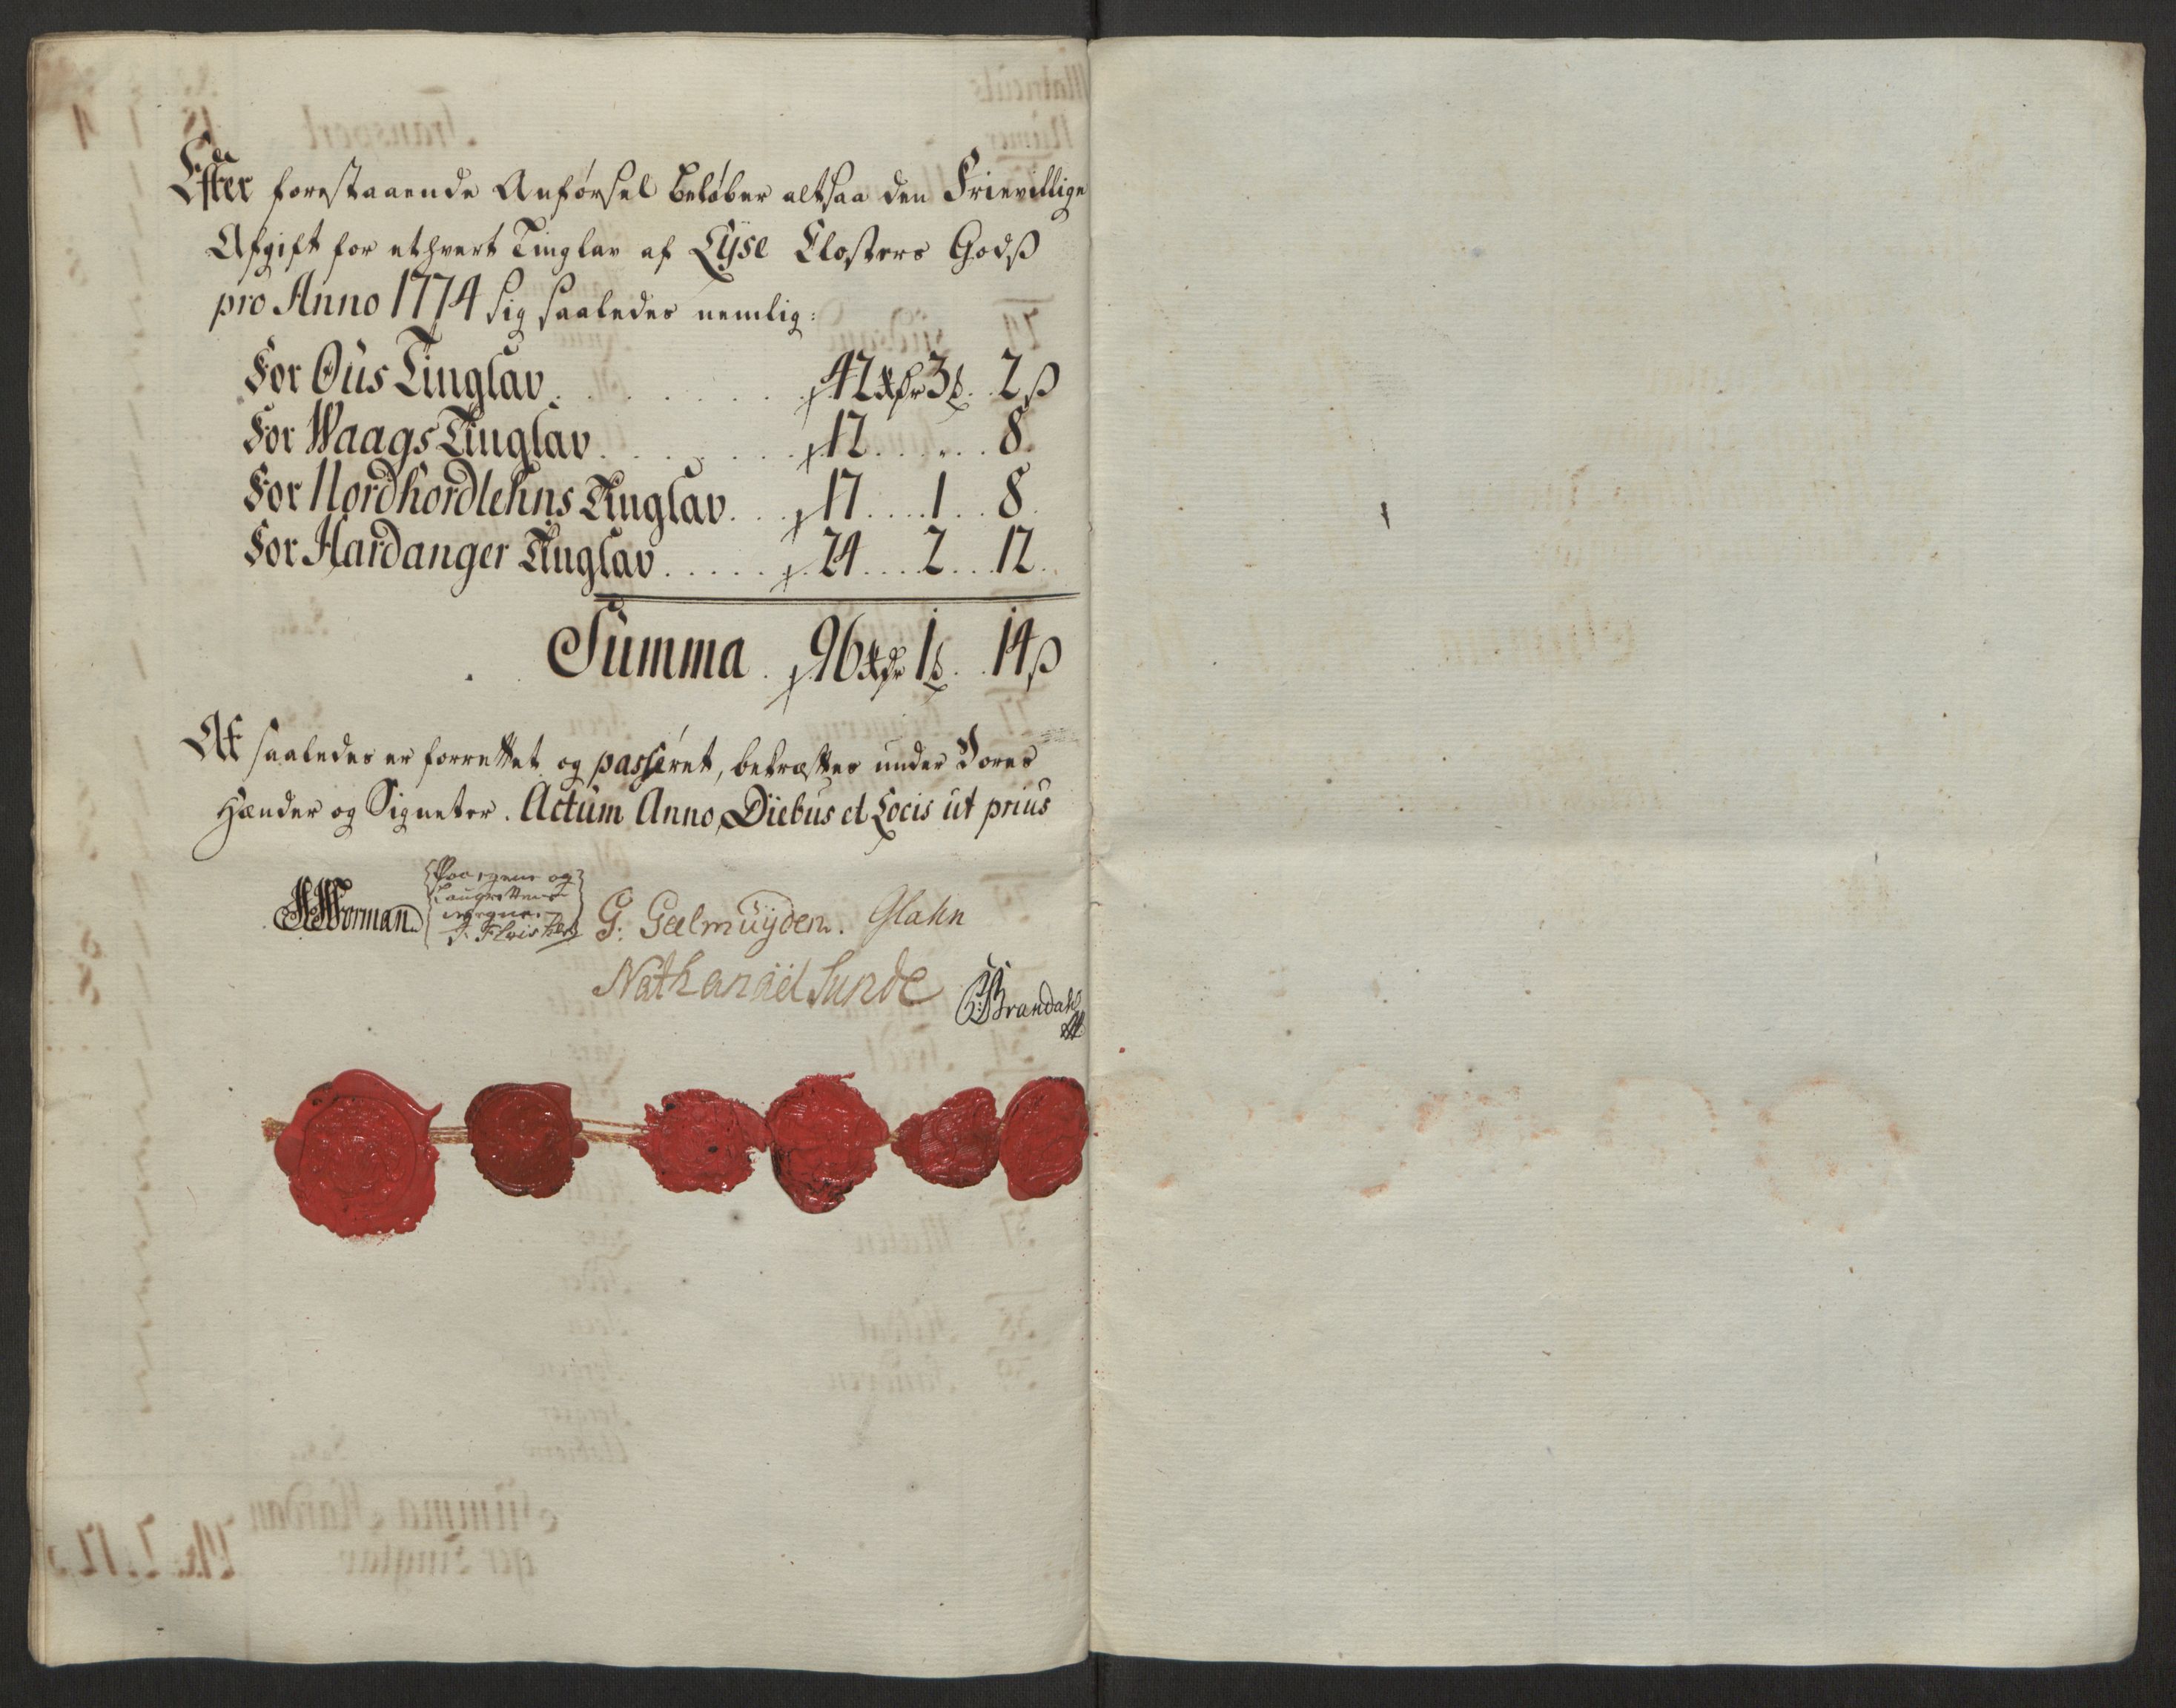 Efter forestaaende Anførsel beløber altsaa den Frievillige
Afgift for ethvert Tinglav af Lÿse Closters Godß
pro Anno 1774 sig saaledes nemlig:
For Oüs Tinglav . . . . . . . 42 Rdr 3 ℔ . 2 ß
For Waags Tinglav . . . . . . 12 . . . . . . 8
For Nordhordlehns Tinglav . . . 17 . . . 1 . . 8
For Hardanger Tinglav . . . . . 24 . . . 2 . . 12
Summa . 96 Rdr 1 ℔ . 14 ß
At saaledes er forrettet og passeret, bekræftes under Vores
Hænder og Signeter. Actum Anno, Diebus et Locis ut prius
Worman
Paa egene og
Laugrettens
vegne
J. Fleischer
G: Geelmuÿden. Glahn
Nathanäel Sunde
Brandahl